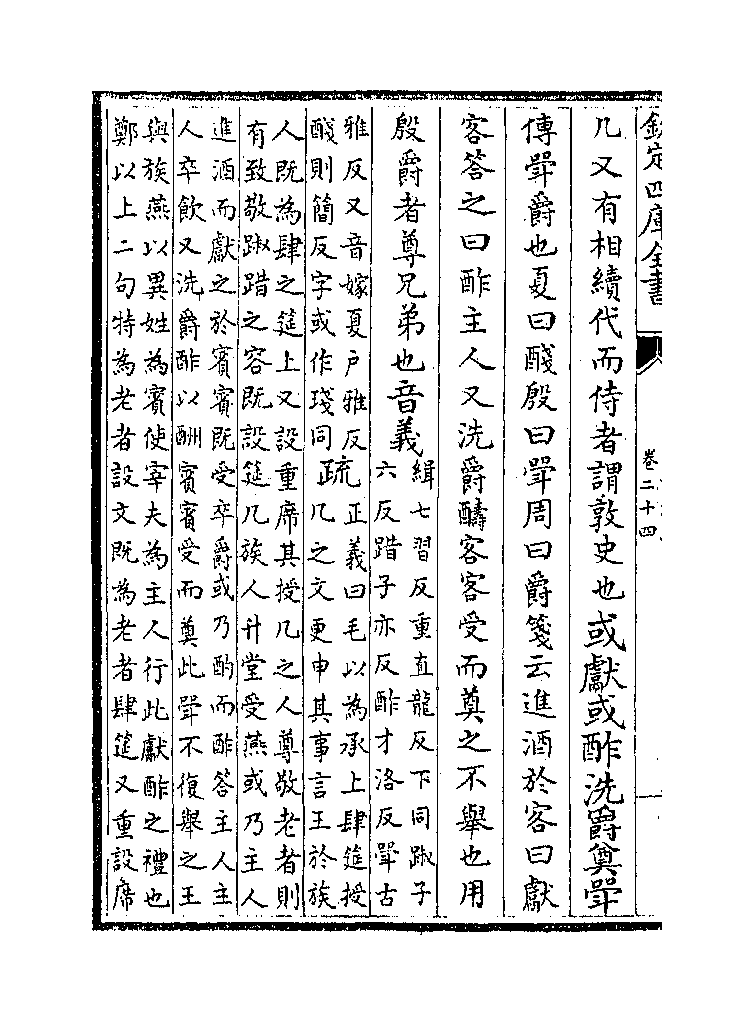 欽定四庫全書
卷二十四
几又有相續代而侍者謂敦史也或獻或酢洗爵奠斝
傳斝爵也夏曰醆殷曰斝周曰爵箋云進酒於客曰獻
客答之曰酢主人又洗爵醻客客受而奠之不舉也用
殷爵者尊兄弟也音義
緝七習反重直龍反下同踧子
六反踖子亦反酢才洛反斝古
雅反又音嫁夏戶雅反
醆則簡反字或作琖同
疏
正義曰毛以為承上肆筵授
几之文更申其事言王於族
人既為肆之筵上又設重席其授几之人尊敬老者則
有致敬踧踖之容既設筵几族人升堂受燕或乃主人
進酒而獻之於賓賓既受卒爵或乃酌而酢答主人主
人卒飲又洗爵酢以酬賓賓受而奠此斝不復舉之王
與族燕以異姓為賓使宰夫為主人行此獻酢之禮也
鄭以上二句特為老者設文既為老者肆筵又重設席